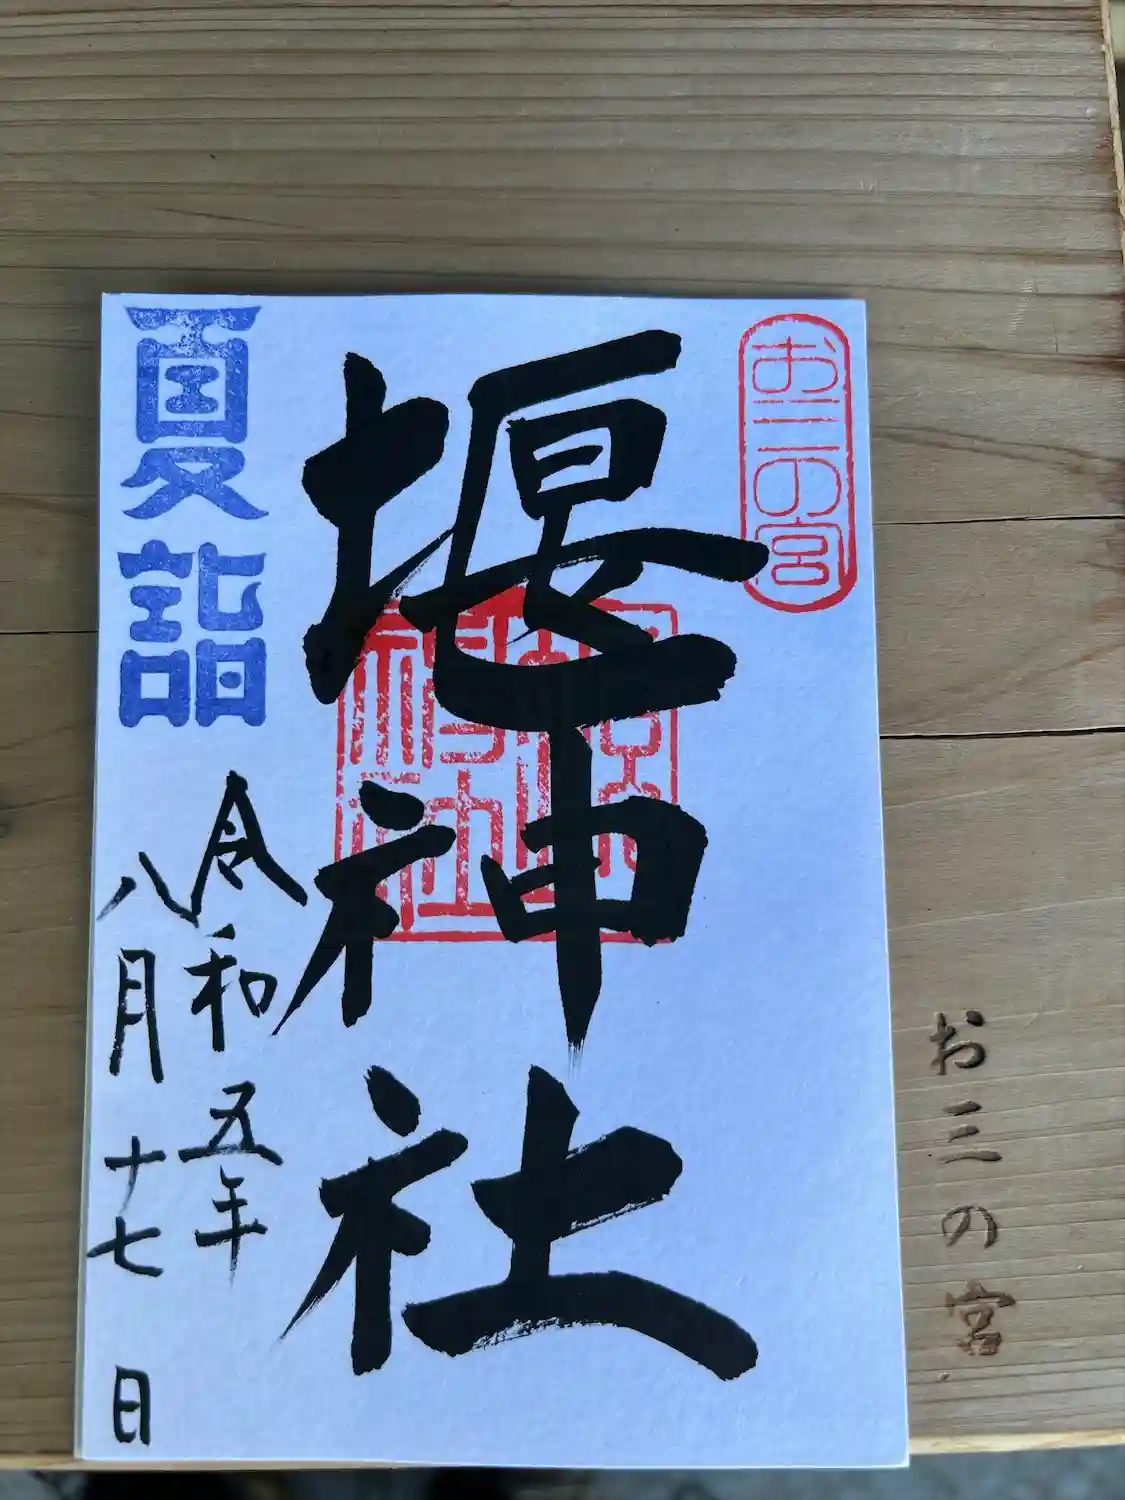 お三の宮
堰神社
夏詣
令和五年
八月十七日
お三の宮